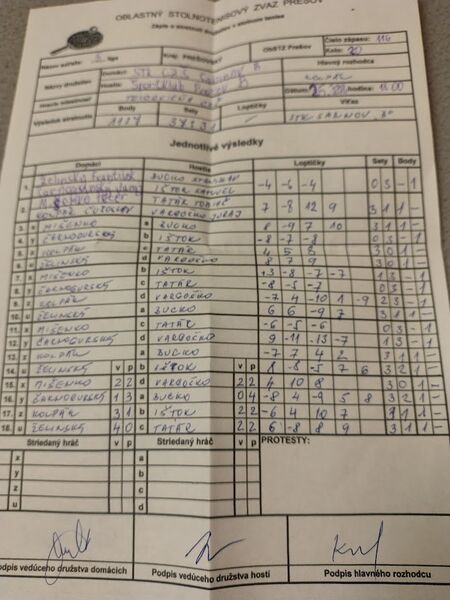 OBLASTNÝ STOLNOTENISOVÝ ZVÄZ PREŠOV
Zápis o stretnutí družstiev v stolnom tenise
Názov súťaže: 3. liga Kraj: PREŠOVSKÝ OSSTZ Prešov Číslo zápasu: 116
Kolo: 20
Názvy družstiev Domáci: STK CZŠ SABINOV B Hlavný rozhodca
Hostia: KOLPÁK
Hracia miestnosť Dátum: hodina:
Výsledok stretnutia 11:7 37:31 Loptičky Víťaz
STK SABINOV "B"
Jednotlivé výsledky
Domáci Hostia Loptičky Sety Body
1. Želinský František BUCKO -4 -6 -4 0 3 - 1
IŠTOK SAMUEL
2. TATÁR 7 -8 12 9 3 1 1 -
VARGOČKO JURAJ
3. x MIŠENKO a BUCKO 8 -9 7 10 3 1 1 -
4. y ČARNOGURSKÝ b IŠTOK -8 -7 -8 0 3 - 1
5. z KOLPÁK c TATÁR 4 5 8 3 0 1 -
6. u ŽELINSKÝ d VARGOČKO 8 7 9 3 0 1 -
7. x MIŠENKO b IŠTOK 13 -8 -7 -7 1 3 - 1
8. y ČARNOGURSKÝ c TATÁR -8 -5 -7 0 3 - 1
9. z KOLPÁK d VARGOČKO -7 4 -10 1 -9 2 3 - 1
10. u ŽELINSKÝ a BUCKO 6 6 -9 7 3 1 1 -
11. x MIŠENKO c TATÁR -6 -5 -6 0 3 - 1
12. y ČARNOGURSKÝ d VARGOČKO 9 -11 -13 -7 1 3 - 1
13. z KOLPÁK a BUCKO -7 7 4 2 3 1 1 -
14. u ŽELINSKÝ v p b IŠTOK v p 8 -8 -5 7 6 3 2 1 -
15. x MIŠENKO 2 2 d VARGOČKO 2 2 4 10 8 3 0 1 -
16. y ČARNOGURSKÝ 1 3 a BUCKO 0 4 -8 4 -9 5 8 3 2 1 -
17. z KOLPÁK 3 1 b IŠTOK 2 2 -6 4 10 7 3 1 1 -
18. u ŽELINSKÝ 4 0 c TATÁR 2 2 6 -8 8 9 3 1 1 -
Striedaný hráč v p Striedaný hráč v p PROTESTY:
x a
y b
z c
u d
Podpis vedúceho družstva domácich Podpis vedúceho družstva hostí Podpis hlavného rozhodcu